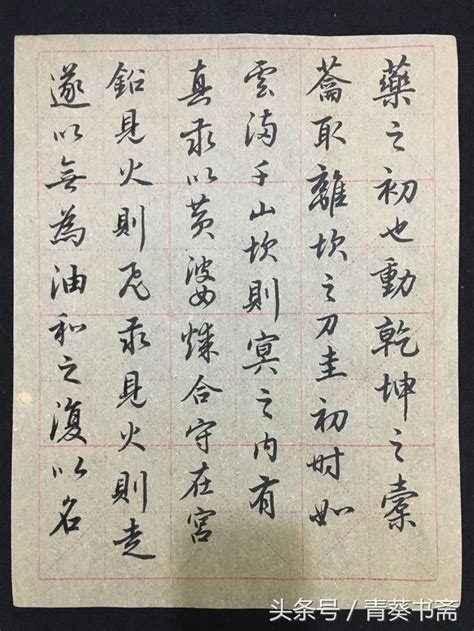 藥之初也動乾坤之橐
籥取離坎之刀圭初時如
雲滿千山坎則冥之内有
真汞以黄婆煉合守在宮
鉛見火則飛汞見火則走
遂以無為油和之復以名
头条号 / 青葵书斋